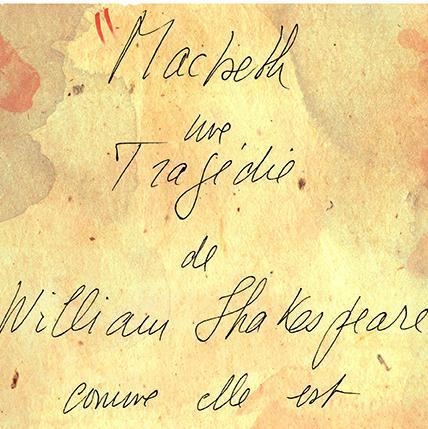 "Macbeth
une
Tragédie
de
William Shakespeare
comme elle est